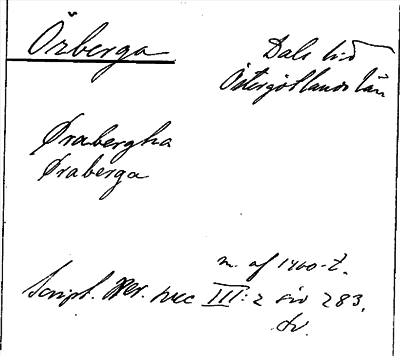 Örberga
Dals hd
Östergötlands län
Ørabergha
Øraberga
m. af 1400-t.
Script. rer. svec III: 2 sid 283.